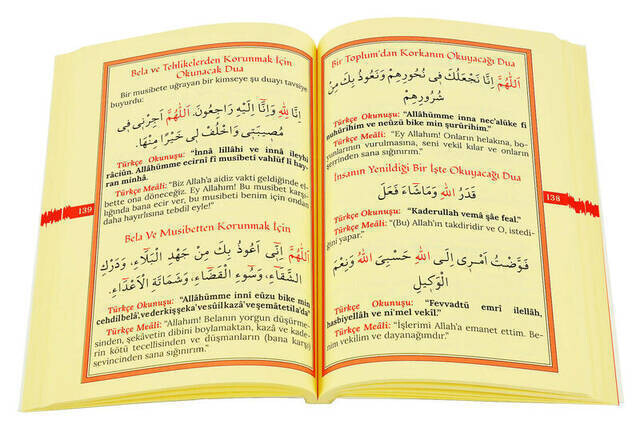 Bir Toplum'dan Korkanın Okuyacağı Dua
اَللّٰهُمَّ اِنَّا نَجْعَلُكَ فِى نُحُورِهِمْ وَنَعُوذُ بِكَ مِنْ
شُرُورِهِمْ
Türkçe Okunuşu: "Allâhümme inna nec'alüke fî
nuhûrihim ve neûzü bike min şurûrihim."
Türkçe Meâli: "Ey Allahım! Onların helakına, bo-
yunlarının vurulmasına, seni vekil kılar ve onların
şerrinden sana sığınırım."
İnsanın Yenildiği Bir İşte Okuyacağı Dua
قَدَرُ اللهِ وَمَاشَاءَ فَعَلَ
Türkçe Okunuşu: "Kaderullah vemâ şâe feal."
Türkçe Meâli: "(Bu) Allah'ın takdiridir ve O, istedi-
ğini yapar."
فَوَّضْتُ اَمْرِى اِلَى اللهِ حَسْبِىَ اللهُ وَنِعْمَ
الْوَكِيلِ
Türkçe Okunuşu: "Fevvadtü emrî ilellâh,
hasbiyellâh ve ni'mel vekîl."
Türkçe Meâli: "İşlerimi Allah'a emanet ettim. Be-
nim vekilim ve dayanağımdır."
138
Bela ve Tehlikelerden Korunmak İçin
Okunacak Dua
Bir musibete uğrayan bir kimseye şu duayı tavsiye
buyurdu:
اِنَّا لِلّٰهِ وَاِنَّا اِلَيْهِ رَاجِعُونَ. اَللّٰهُمَّ اَجِرْنِى فِى
مُصِيبَتِى وَاخْلُفْ لِى خَيْرًا مِنْهَا.
Türkçe Okunuşu: "İnnâ lillâhi ve innâ ileyhi
râciûn. Allâhümme ecirnî fî musîbetî vahlüf lî hay-
ran minhâ."
Türkçe Meâli: "Biz Allah'a aidiz vakti geldiğinde el-
bette ona döneceğiz. Ey Allahım! Bu musibet karşı-
lığında bana ecir ver, bu musibeti benim için ondan
daha hayırlısına tebdil eyle!"
Bela Ve Musibetten Korunmak İçin
اَللّٰهُمَّ اِنِّى اَعُوذُ بِكَ مِنْ جَهْدِ الْبَلَاءِ، وَدَرَكِ
الشَّقَاءِ، وَسُوءِ الْقَضَاءِ، وَشَمَاتَةِ الْاَعْدَاءِ.
Türkçe Okunuşu: "Allâhümme inni eûzu bike min
cehdilbelâ', vederkişşeka' ve sûilkazâ' ve şemâtetila'dâ"
Türkçe Meâli: "Allahım! Belanın yorgun düşürme-
sinden, şekâvetin dibini boylamaktan, kazâ ve kade-
rin kötü tecellisinden ve düşmanların (bana karşı)
sevincinden sana sığınırım."
139